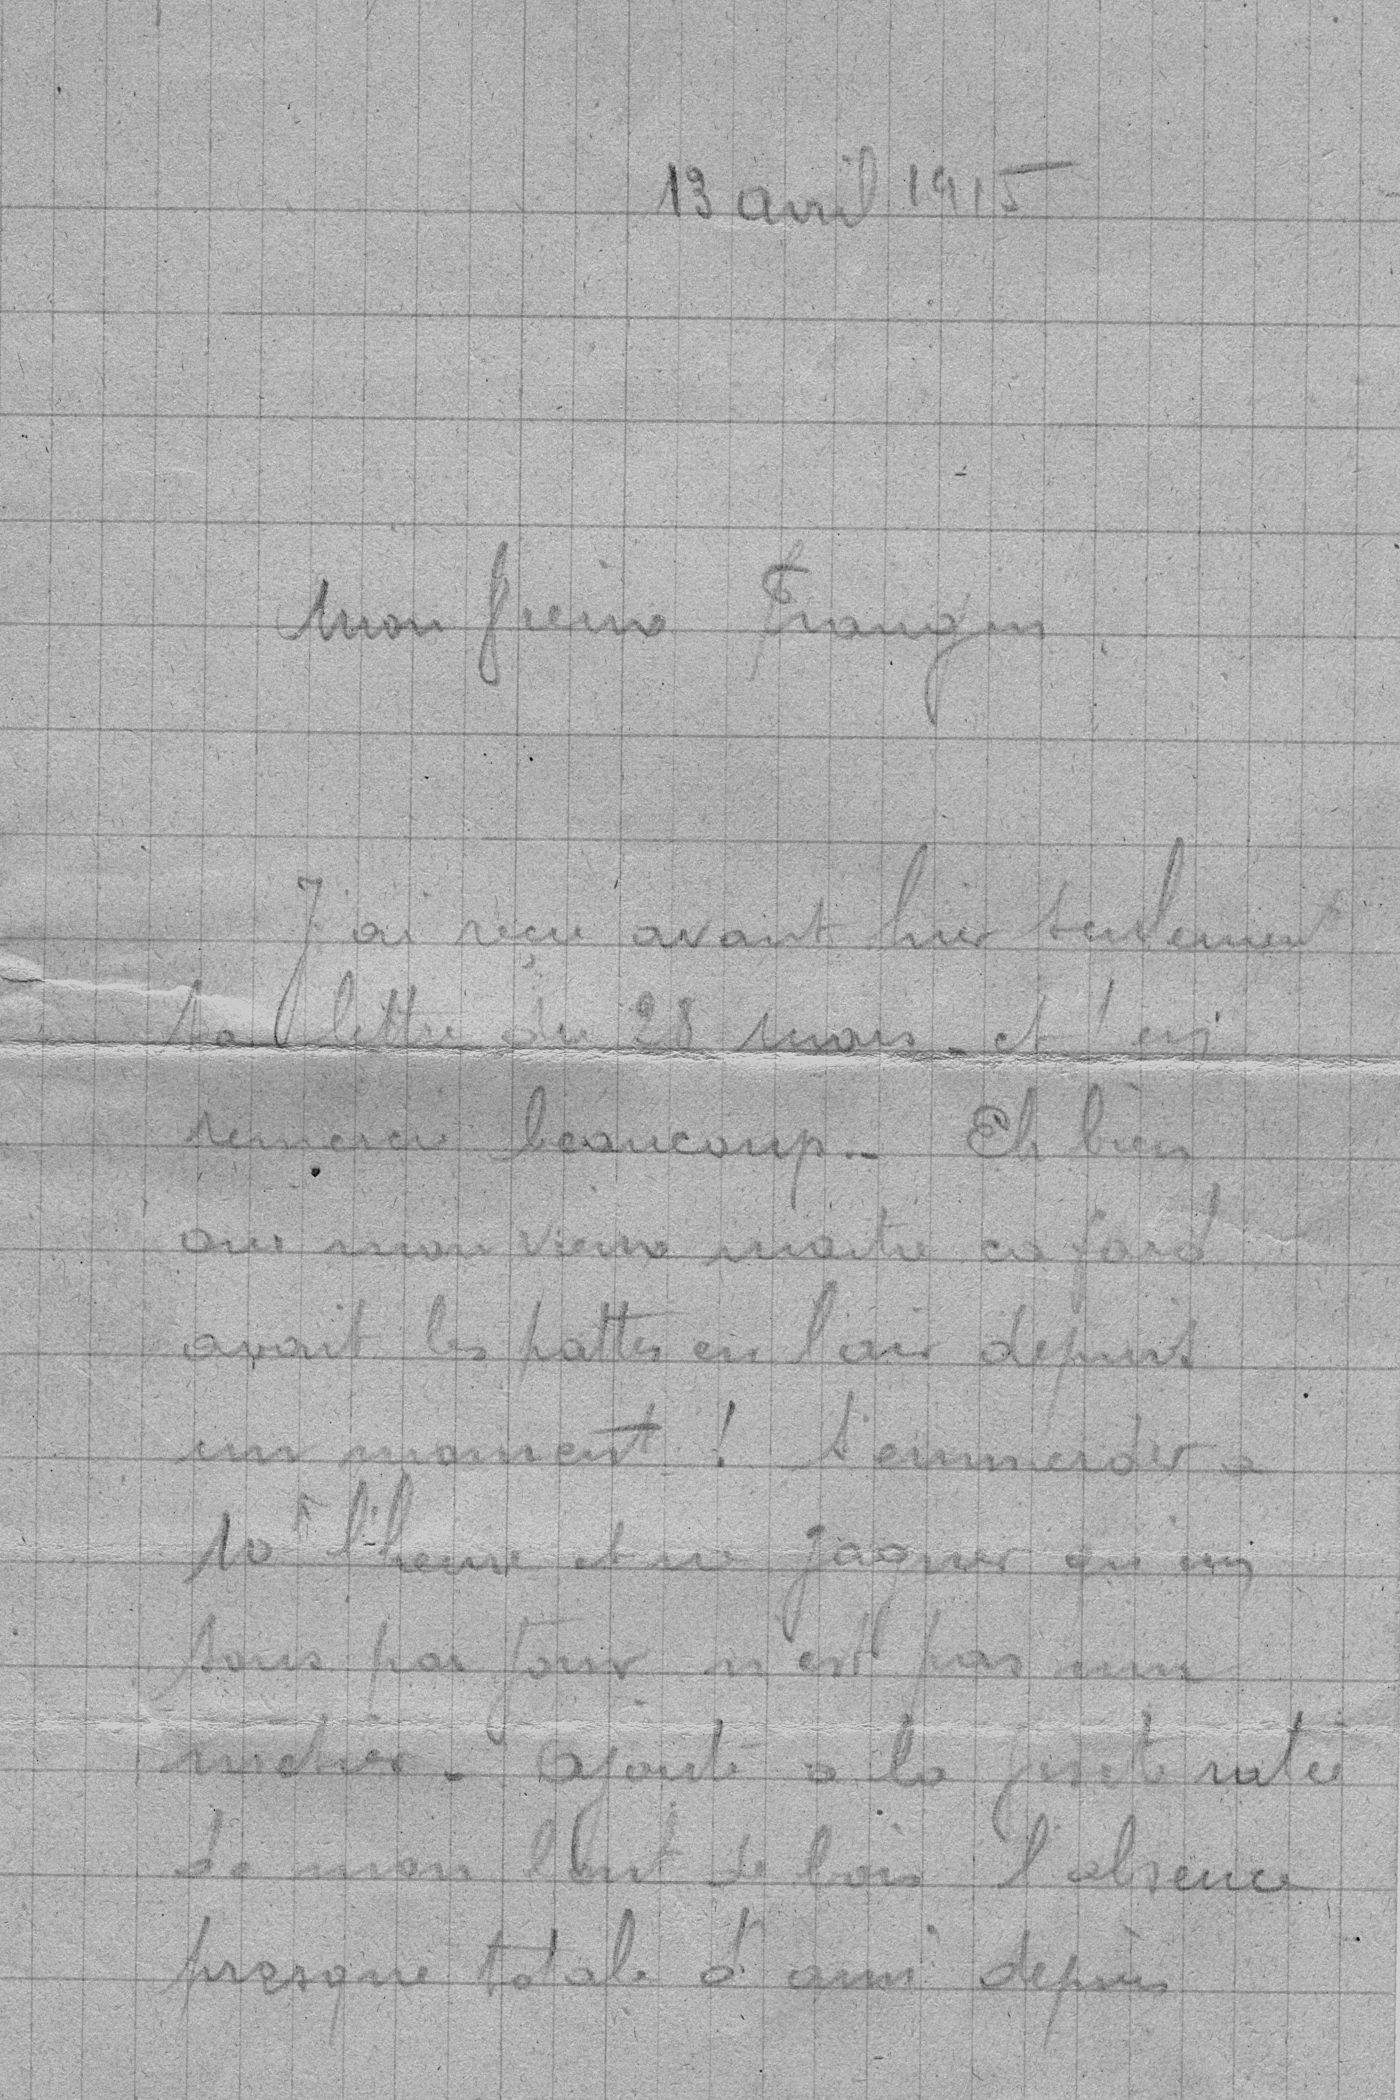 13 avril 1915
Mon
J'ai reçu avant hier seulement
ta lettre du 28 mars - et t'en
remercie beaucoup - Eh bien
oui mon vieux maître cafard
avait les pattes en l'air depuis
un moment ! S'emmerder a
10 l'heure et ne gagner qu'un
sous par jour n'est pas un
métier - ajouté a la
de mon de l'absence
presque totale d'ami depuis